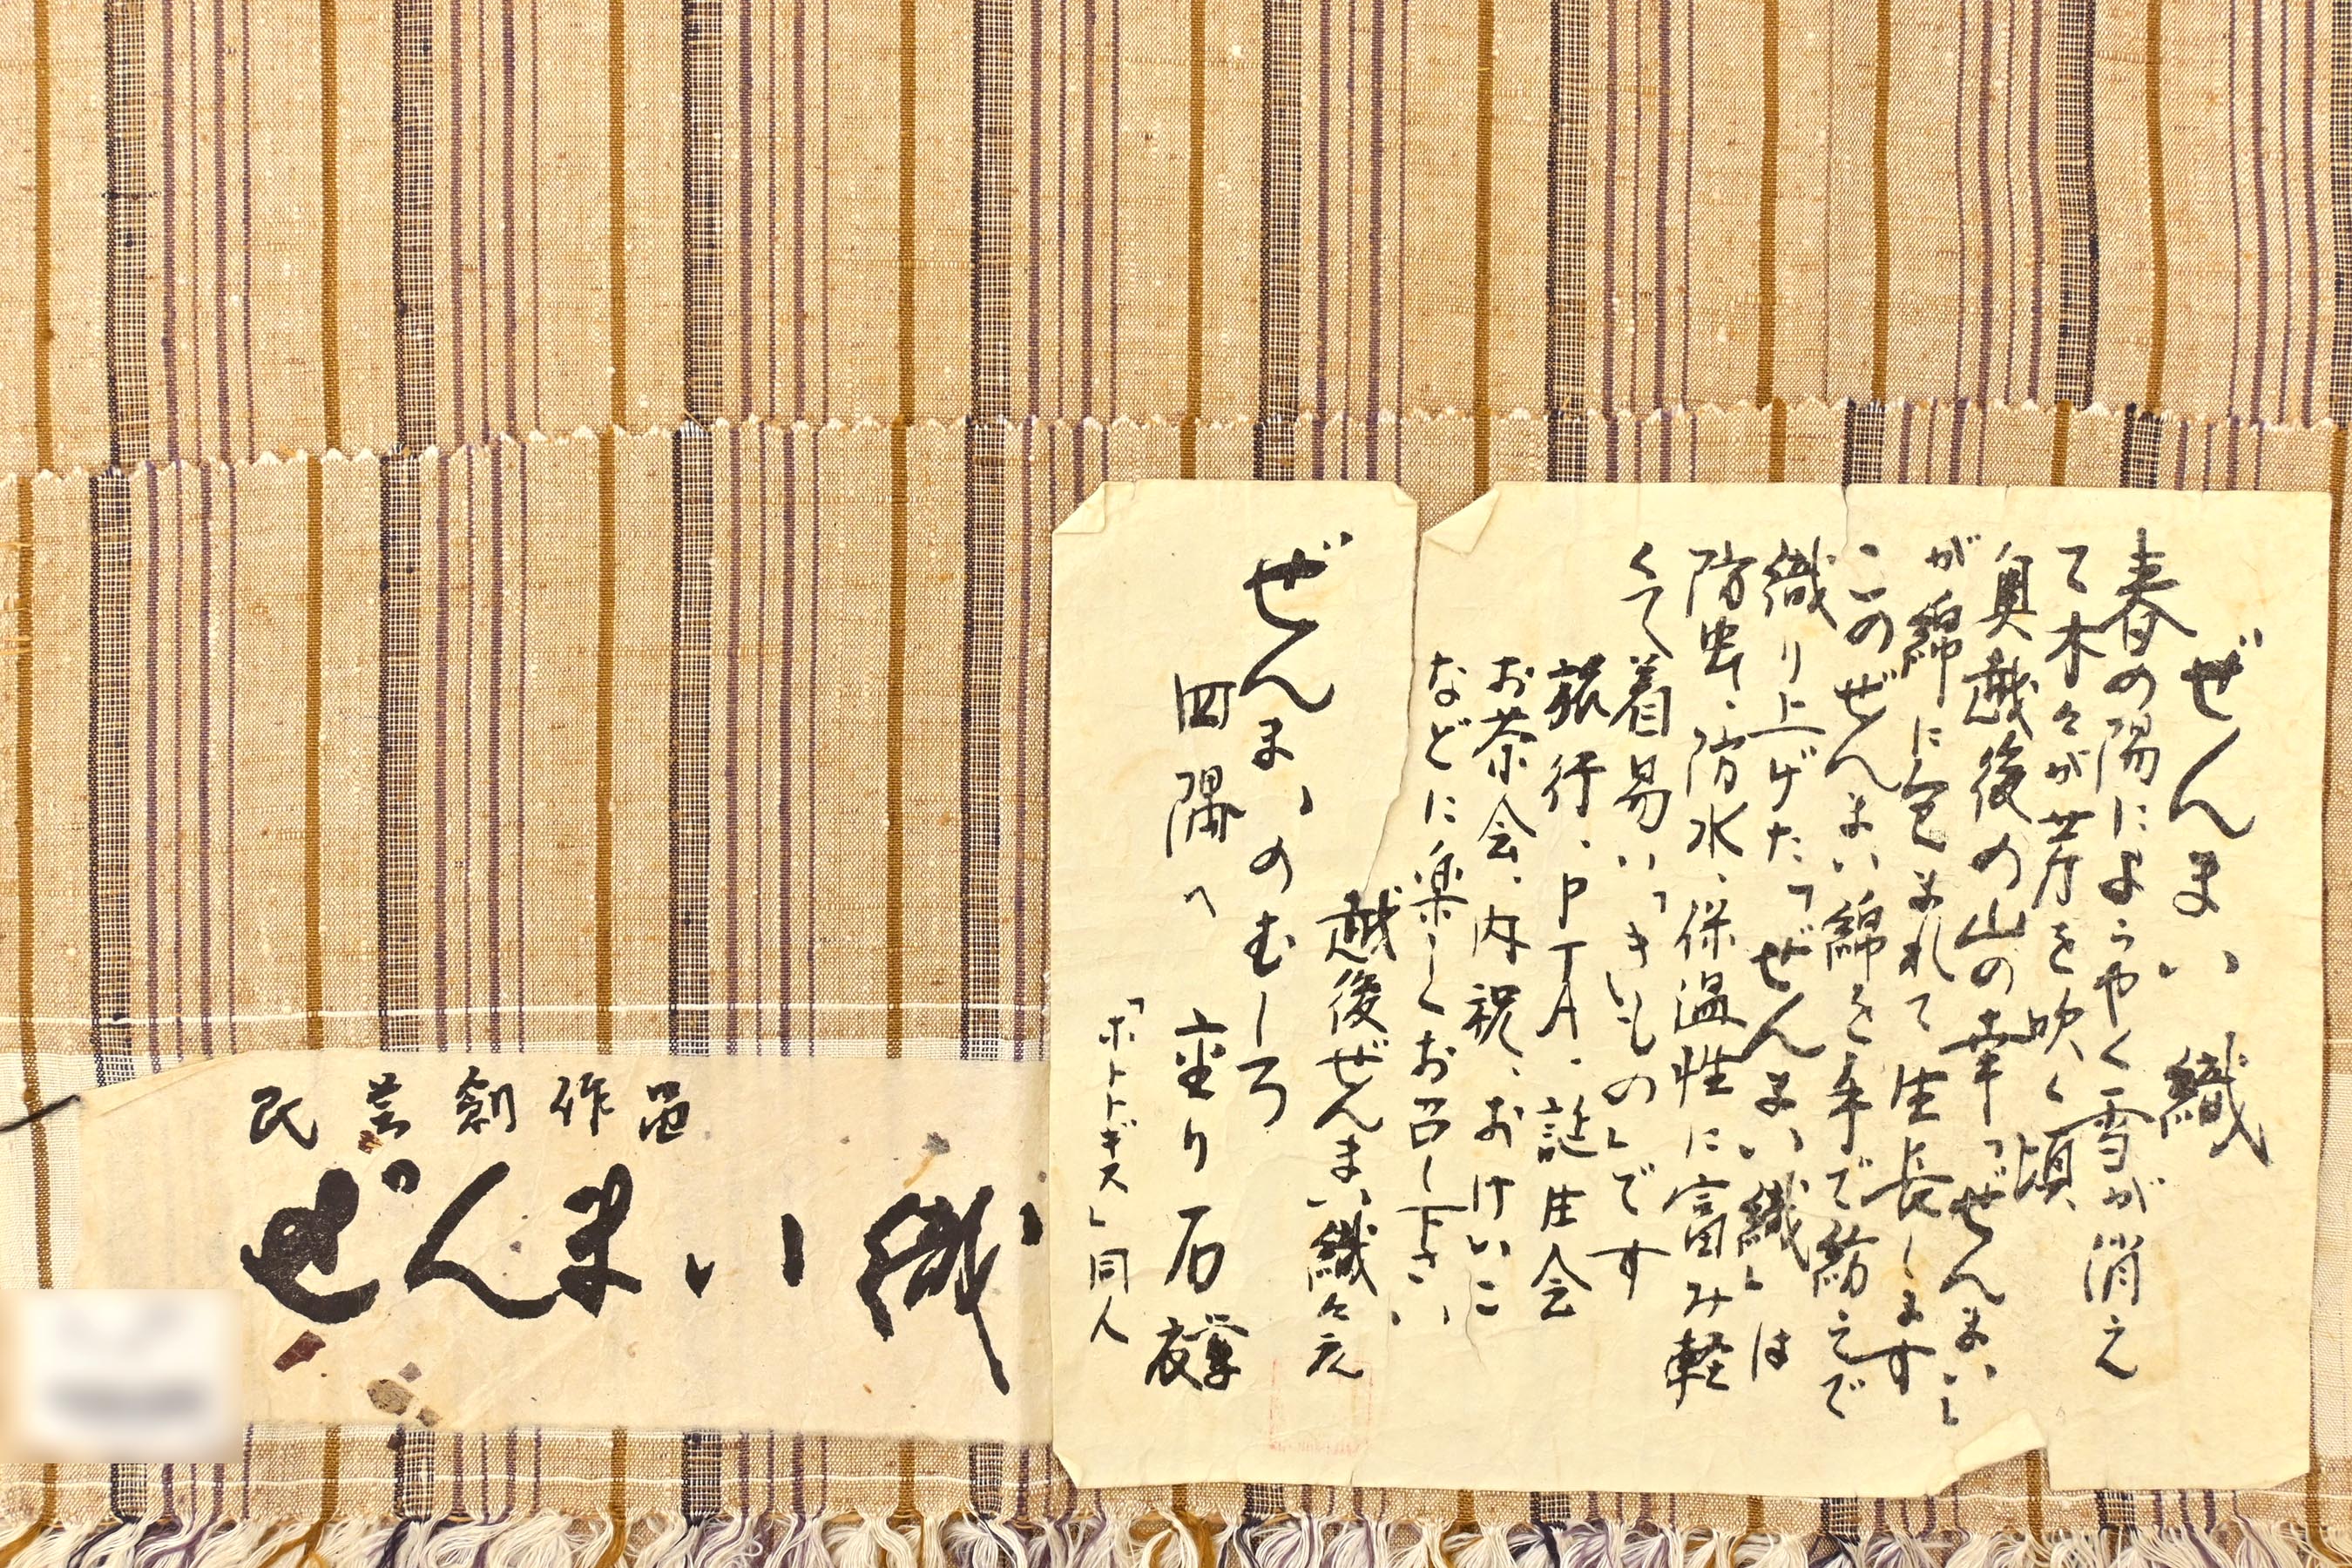 ぜんまい織
春の陽にようやく雪が消え
て木々が芽を吹く頃、
奥越後の山の幸「ぜんまい」
が綿に包まれて生長します
このぜんまい綿を手で紡えで
織り上げた「ぜんまい織」は
防虫、防水、保温性に富み軽
くて着易い「きもの」です
旅行、PTA、誕生会
お茶会、内祝、おけいこ
などに楽しくお召し下さい
越後ぜんまい織々元
ぜんまいのむしろ
四隅へ 座り石
「ホトトギス」同人
民芸創作品
ぜんまい織